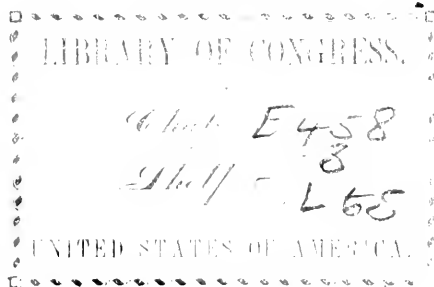 LIBRARY OF CONGRESS.
Chap. E 458
.8
Shelf - L 65
UNITED STATES OF AMERICA.